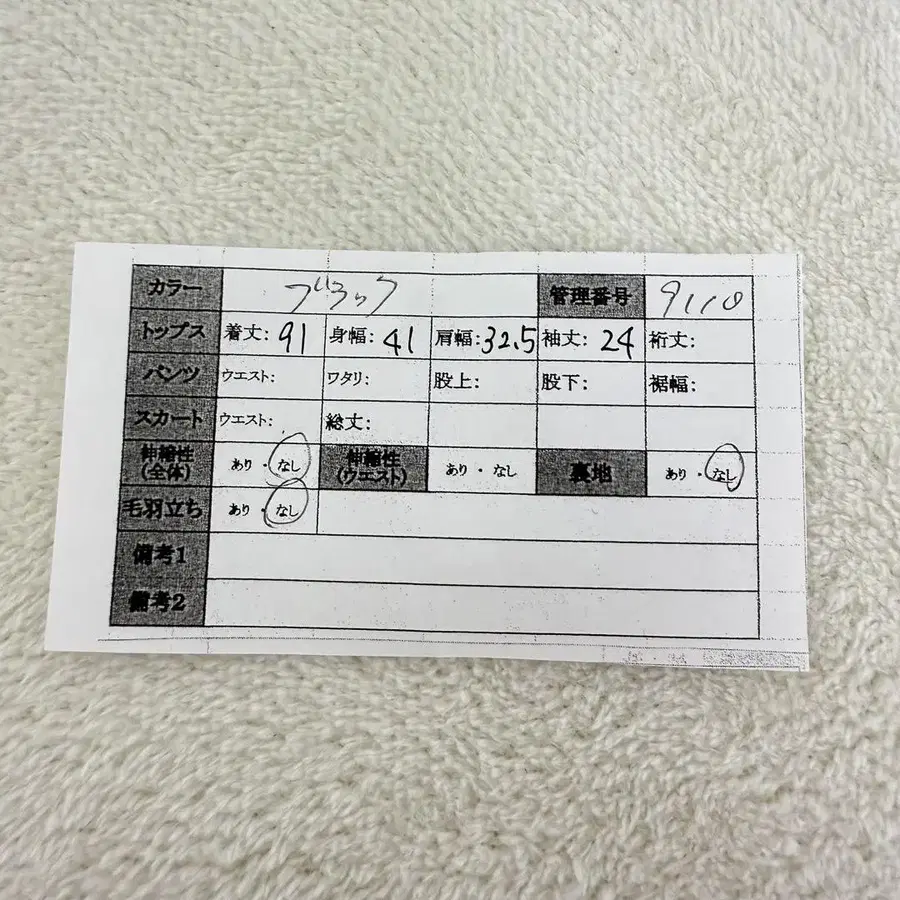 カラー ブラック 管理番号 9110
トップス 着丈: 91 身幅: 41 肩幅: 32.5 袖丈: 24 裄丈:
パンツ ウエスト: ワタリ: 股上: 股下: 裾幅:
スカート ウエスト: 総丈:
伸縮性(全体) あり・なし 伸縮性(ウエスト) あり・なし 裏地 あり・なし
毛羽立ち あり・なし
備考1
備考2